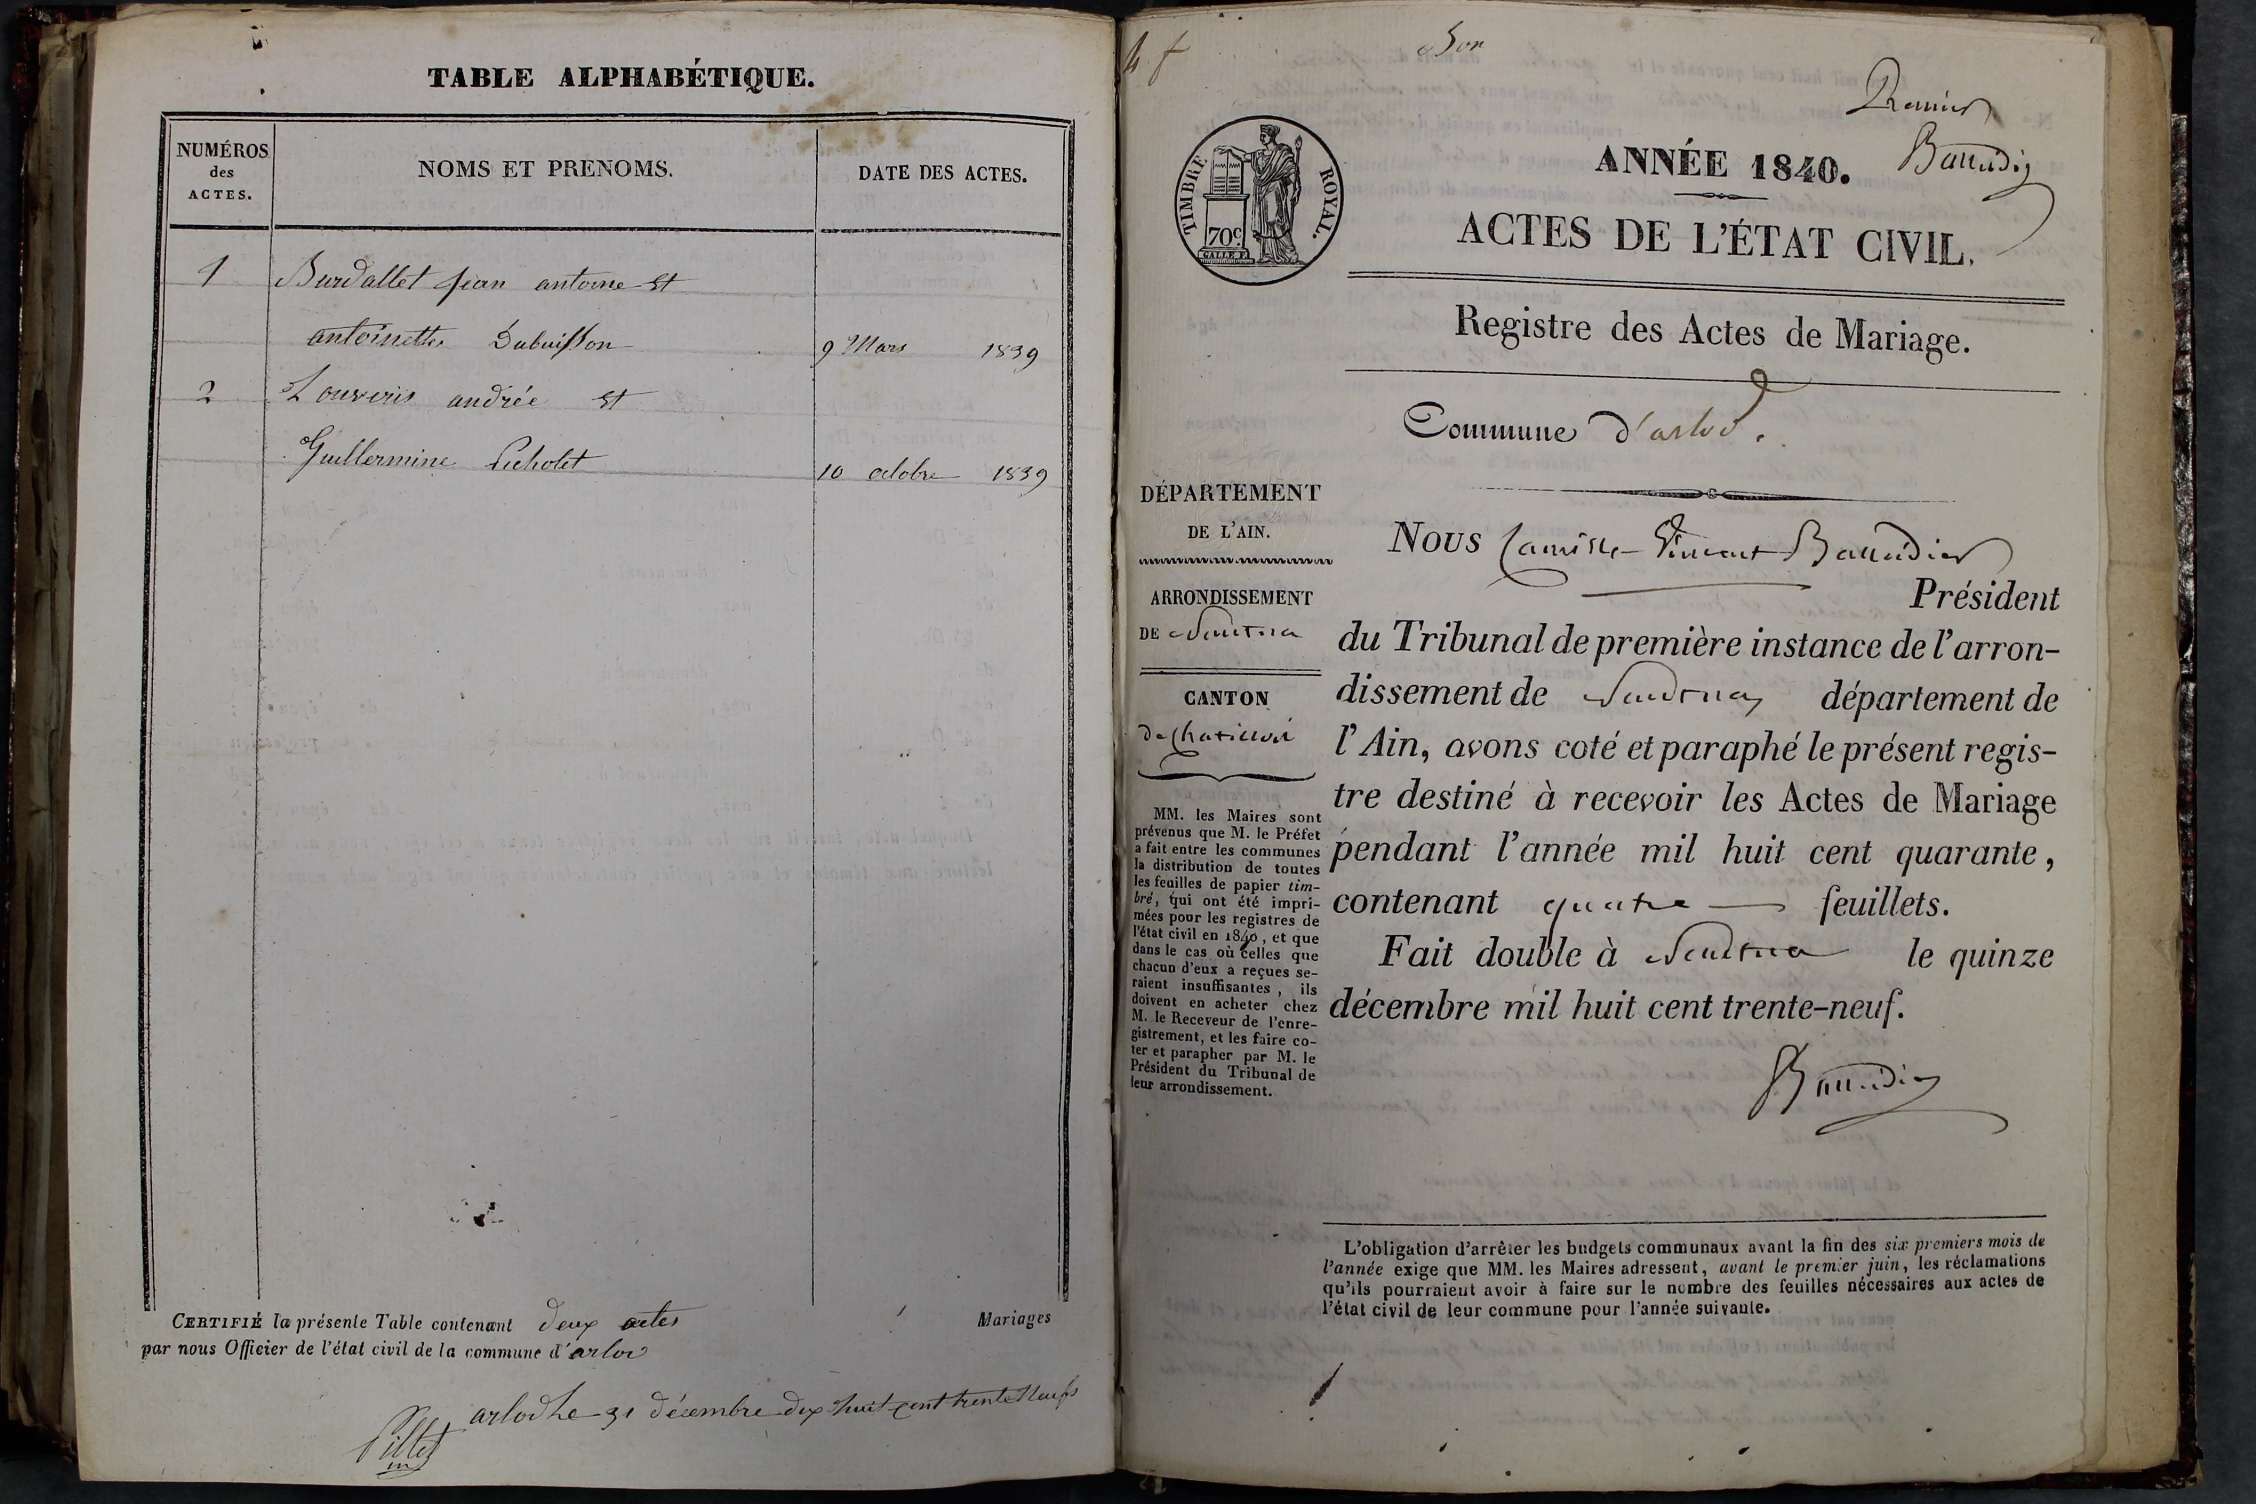 TABLE ALPHABÉTIQUE.
NUMÉROS
des
ACTES.
NOMS ET PRENOMS.
DATE DES ACTES.
1 Burdallet jean antoine et
antoinette Dubuisson 9 Mars 1839
2 Louvris andrée et
Guillermine Picholet 10 octobre 1839
CERTIFIÉ la présente Table contenant deux actes Mariages
par nous Officier de l'état civil de la commune d'arlod
arlod Le 31 décembre dix huit cent trente neufs
Pillet
4 f
Bon
Premier
Baudin
TIMBRE ROYAL.
70c
ANNÉE 1840.
ACTES DE L'ÉTAT CIVIL.
Registre des Actes de Mariage.
Commune d'arlod.
DÉPARTEMENT
DE L'AIN.
ARRONDISSEMENT
DE Nantua
CANTON
de Chatillon
MM. les Maires sont
prévenus que M. le Préfet
a fait entre les communes
la distribution de toutes
les feuilles de papier tim-
bré, qui ont été impri-
mées pour les registres de
l'état civil en 1840, et que
dans le cas où celles que
chacun d'eux a reçues se-
raient insuffisantes, ils
doivent en acheter chez
M. le Receveur de l'enre-
gistrement, et les faire co-
ter et parapher par M. le
Président du Tribunal de
leur arrondissement.
Nous Camille Vincent
Président
du Tribunal de première instance de l'arron-
dissement de Nantua département de
l'Ain, avons coté et paraphé le présent regis-
tre destiné à recevoir les Actes de Mariage
pendant l'année mil huit cent quarante,
contenant quatre feuillets.
Fait double à Nantua le quinze
décembre mil huit cent trente-neuf.
L'obligation d'arrêter les budgets communaux avant la fin des six premiers mois de
l'année exige que MM. les Maires adressent, avant le premier juin, les réclamations
qu'ils pourraient avoir à faire sur le nombre des feuilles nécessaires aux actes de
l'état civil de leur commune pour l'année suivante.